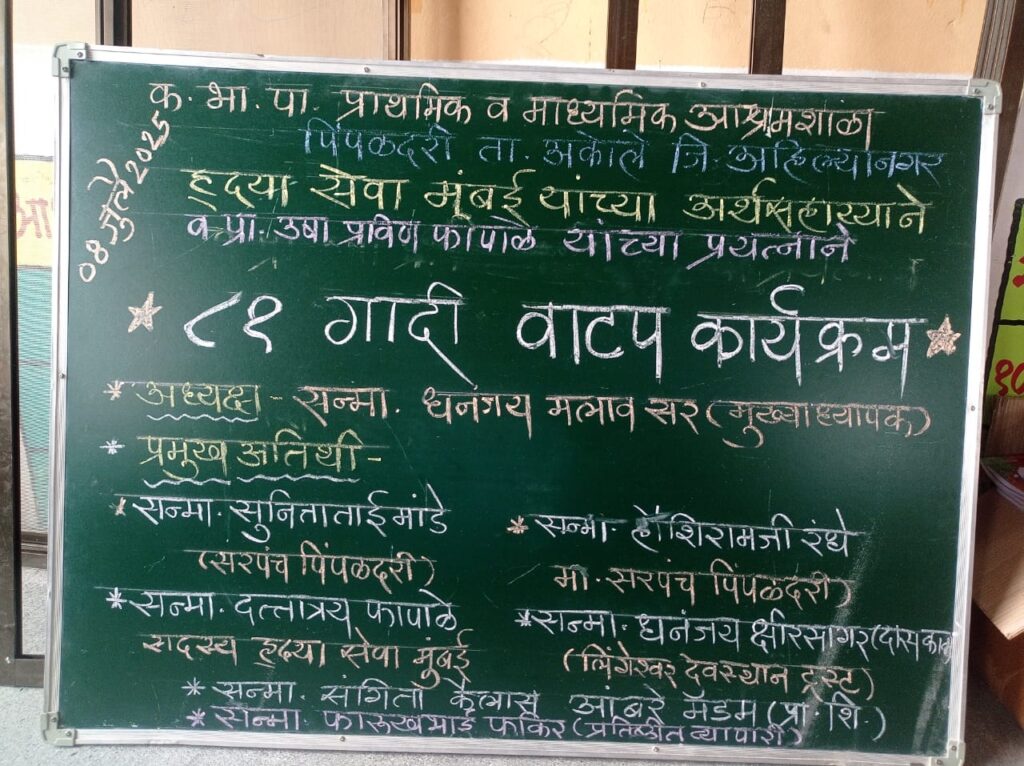 क. भा. पा. प्राथमिक व माध्यमिक आश्रमशाळा
पिंपळदरी ता. अकोले जि. अहिल्यानगर
०४ जुलै २०२५
हृदया सेवा मूंबई यांच्या अर्थसहाय्याने
व प्रा. उषा प्रविण फापाळे यांच्या प्रयत्नाने
८१ गादी वाटप कार्यक्रम
* अध्यक्ष - सन्मा. धनंजय मलाव सर (मुख्याध्यापक)
* प्रमुख अतिथी -
* सन्मा. सुनिताताई मांडे
(सरपंच पिंपळदरी)
* सन्मा. दत्तात्रय फापाळे
सदस्य हृदया सेवा मुंबई
* सन्मा. हौशिरामजी रंधे
मा. सरपंच पिंपळदरी)
* सन्मा. धनंजय क्षीरसागर (दास काका)
(लिंगेश्वर देवस्थान ट्रस्ट)
* सन्मा. संगिता कैलास आंबरे मॅडम (प्रा. शि.)
* सन्मा. फारुखभाई फकिर (प्रतिष्ठीत व्यापारी)